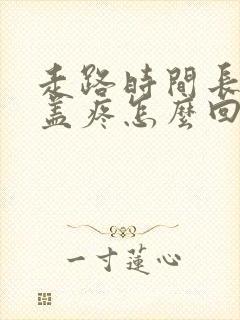 走路時間長
蓋疼怎麼回
一寸蓮心